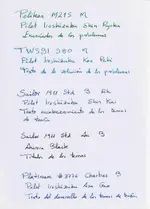 Pelikan M215 M
Pilot Iroshizuku Shin Ryoku
Enunciados de los problemas
TWSBI 580 M
Pilot Iroshizuku Kon Peki
Texto de la solución de los problemas
Sailor 1911 Std B
Pilot Iroshizuku Shin Kai
Texto de los temas
Sailor 1911 Std B
Aurora Black
Títulos de los temas
Platinum #3776 Century B
Pilot Iroshizuku
Texto del desarrollo de los temas de